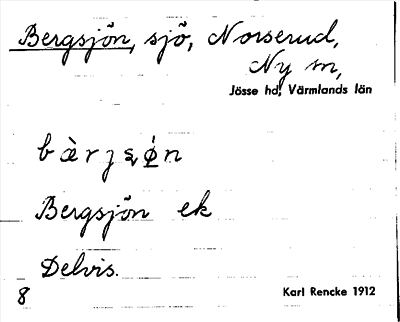 Bergsjön, sjö, Norserud,
Ny sn,
Jösse hd, Värmlands län
Bergsjön ek
Delvis.
8
Karl Rencke 1912